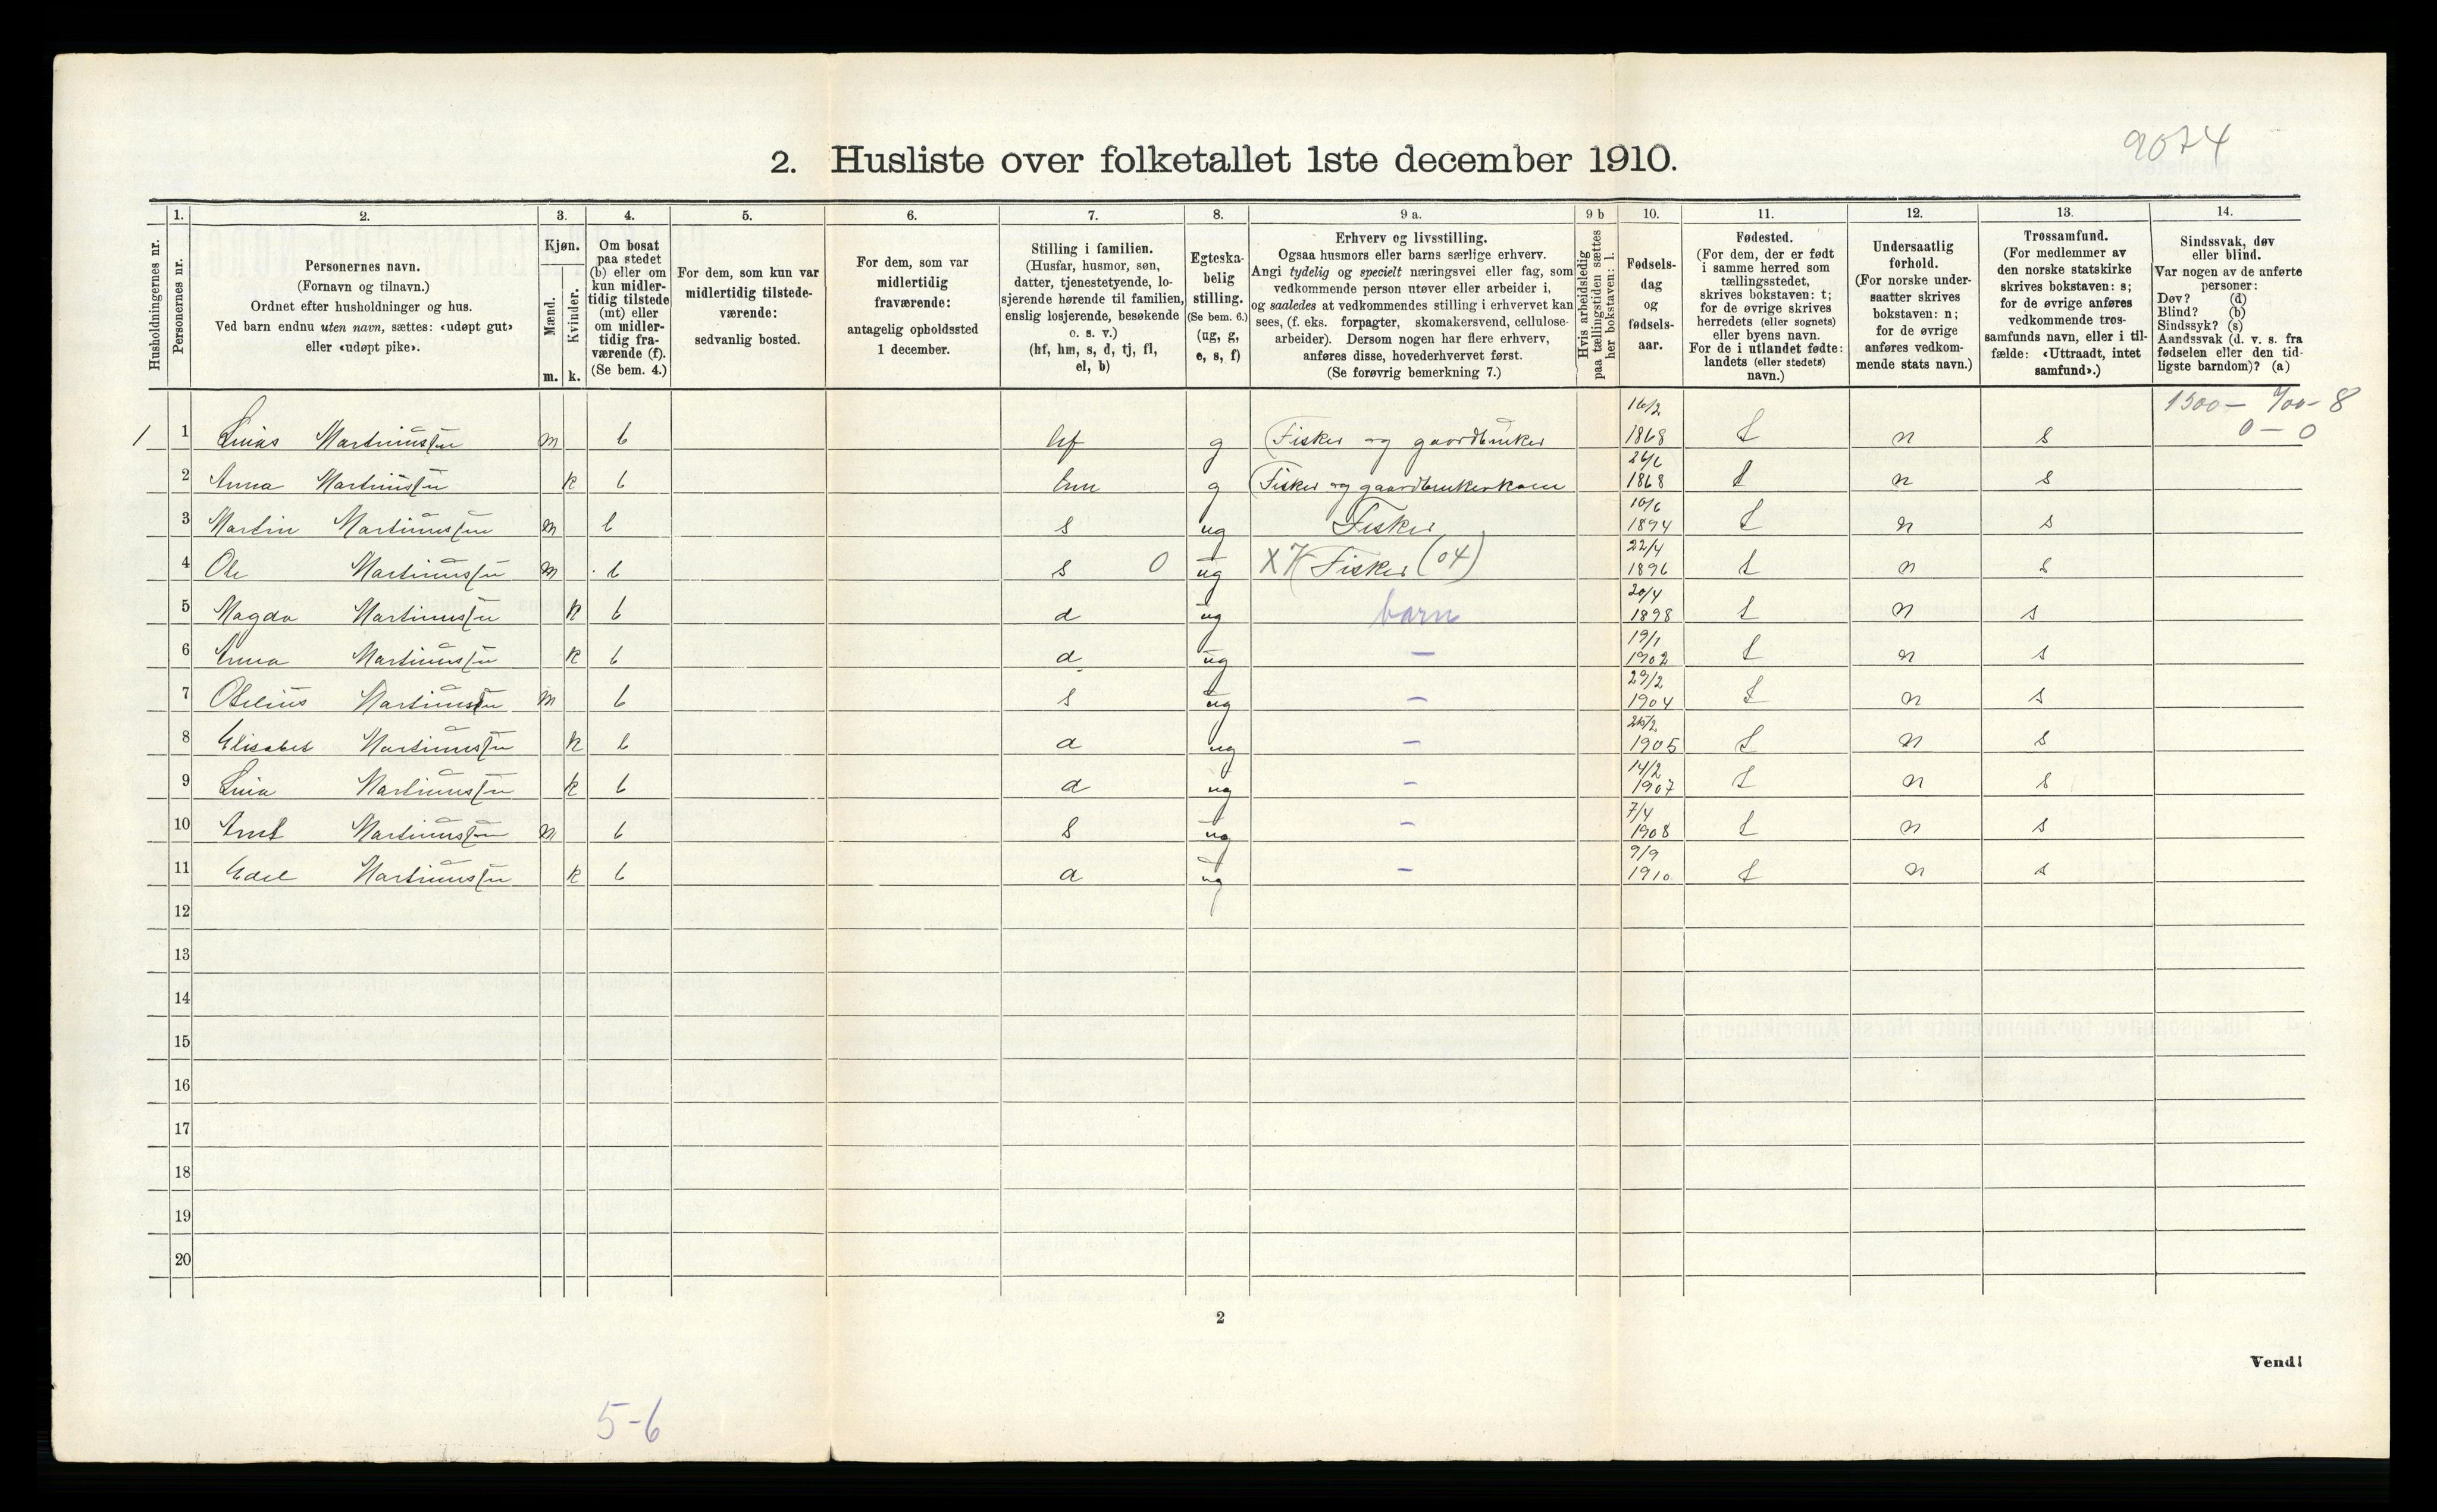 9074
2. Husliste over folketallet 1ste december 1910.
Husholdningernes nr.
1.
Personernes nr.
2.
Personernes navn.
(Fornavn og tilnavn.)
Ordnet efter husholdninger og hus.
Ved barn endnu uten navn, sættes: «udøpt gut»
eller «udøpt pike».
3.
Kjøn.
Mænd.
Kvinder.
m. k.
4.
Om bosat
paa stedet
(b) eller om
kun midler-
tidig tilstede
(mt) eller
om midler-
tidig fra-
værende (f).
(Se bem. 4.)
5.
For dem, som kun var
midlertidig tilstede-
værende:
sedvanlig bosted.
6.
For dem, som var
midlertidig
fraværende:
antagelig opholdssted
1 december.
7.
Stilling i familien.
(Husfar, husmor, søn,
datter, tjenestetyende, lo-
sjerende hørende til familien,
enslig losjerende, besøkende
o. s. v.)
(hf, hm, s, d, tj, fl,
el, b)
8.
Egteska-
belig
stilling.
(Se bem. 6.)
(ug, g,
e, s, f)
9 a.
Erhverv og livsstilling.
Ogsaa husmors eller barns særlige erhverv.
Angi tydelig og specielt næringsvei eller fag, som
vedkommende person utøver eller arbeider i,
og saaledes at vedkommendes stilling i erhvervet kan
sees, (f. eks. forpagter, skomakersvend, cellulose-
arbeider). Dersom nogen har flere erhverv,
anføres disse, hovederhvervet først.
(Se forøvrig bemerkning 7.)
9 b
Hvis arbeidsledig
paa tællingstiden sættes
her bokstaven: l.
10.
Fødsels-
dag
og
fødsels-
aar.
11.
Fødested.
(For dem, der er født
i samme herred som
tællingsstedet,
skrives bokstaven: t;
for de øvrige skrives
herredets (eller sognets)
eller byens navn.
For de i utlandet fødte:
landets (eller stedets)
navn.)
12.
Undersaatlig
forhold.
(For norske under-
saatter skrives
bokstaven: n;
for de øvrige
anføres vedkom-
mende stats navn.)
13.
Trossamfund.
(For medlemmer av
den norske statskirke
skrives bokstaven: s;
for de øvrige anføres
vedkommende tros-
samfunds navn, eller i til-
fælde: «Uttraadt, intet
samfund».)
14.
Sindssvak, døv
eller blind.
Var nogen av de anførte
personer:
Døv? (d)
Blind? (b)
Sindssyk? (s)
Aandssvak (d. v. s. fra
fødselen eller den tid-
ligste barndom)? (a)
1500 — 700 - 8
0 — 0
1 1 Martinussen m b hf g Fisker og gaardbruker 16/2 1868 t n s
2 Anna Martinussen k b hm g Fisker og gaardbrukerkone 26/6 1868 t n s
3 Martin Martinussen m b s ug Fisker 10/6 1894 t n s
4 Ole Martinussen m b s 0 ug X Fisker (04) 22/4 1896 t n s
5 Magda Martinussen k b d ug barn 20/4 1898 t n s
6 Anna Martinussen k b d ug — 19/1 1902 t n s
7 Otelius Martinussen m b s ug — 29/2 1904 t n s
8 Elisabet Martinussen k b d ug — 1905 t n s
9 Lina Martinussen k b d ug — 14/2 1907 t n s
10 Arnt Martinussen m b s ug — 7/4 1908 t n s
11 Edel Martinussen k b d ug — 9/9 1910 t n s
12
13
14
15
16
17
18
19
20
2
Vend!
5-6